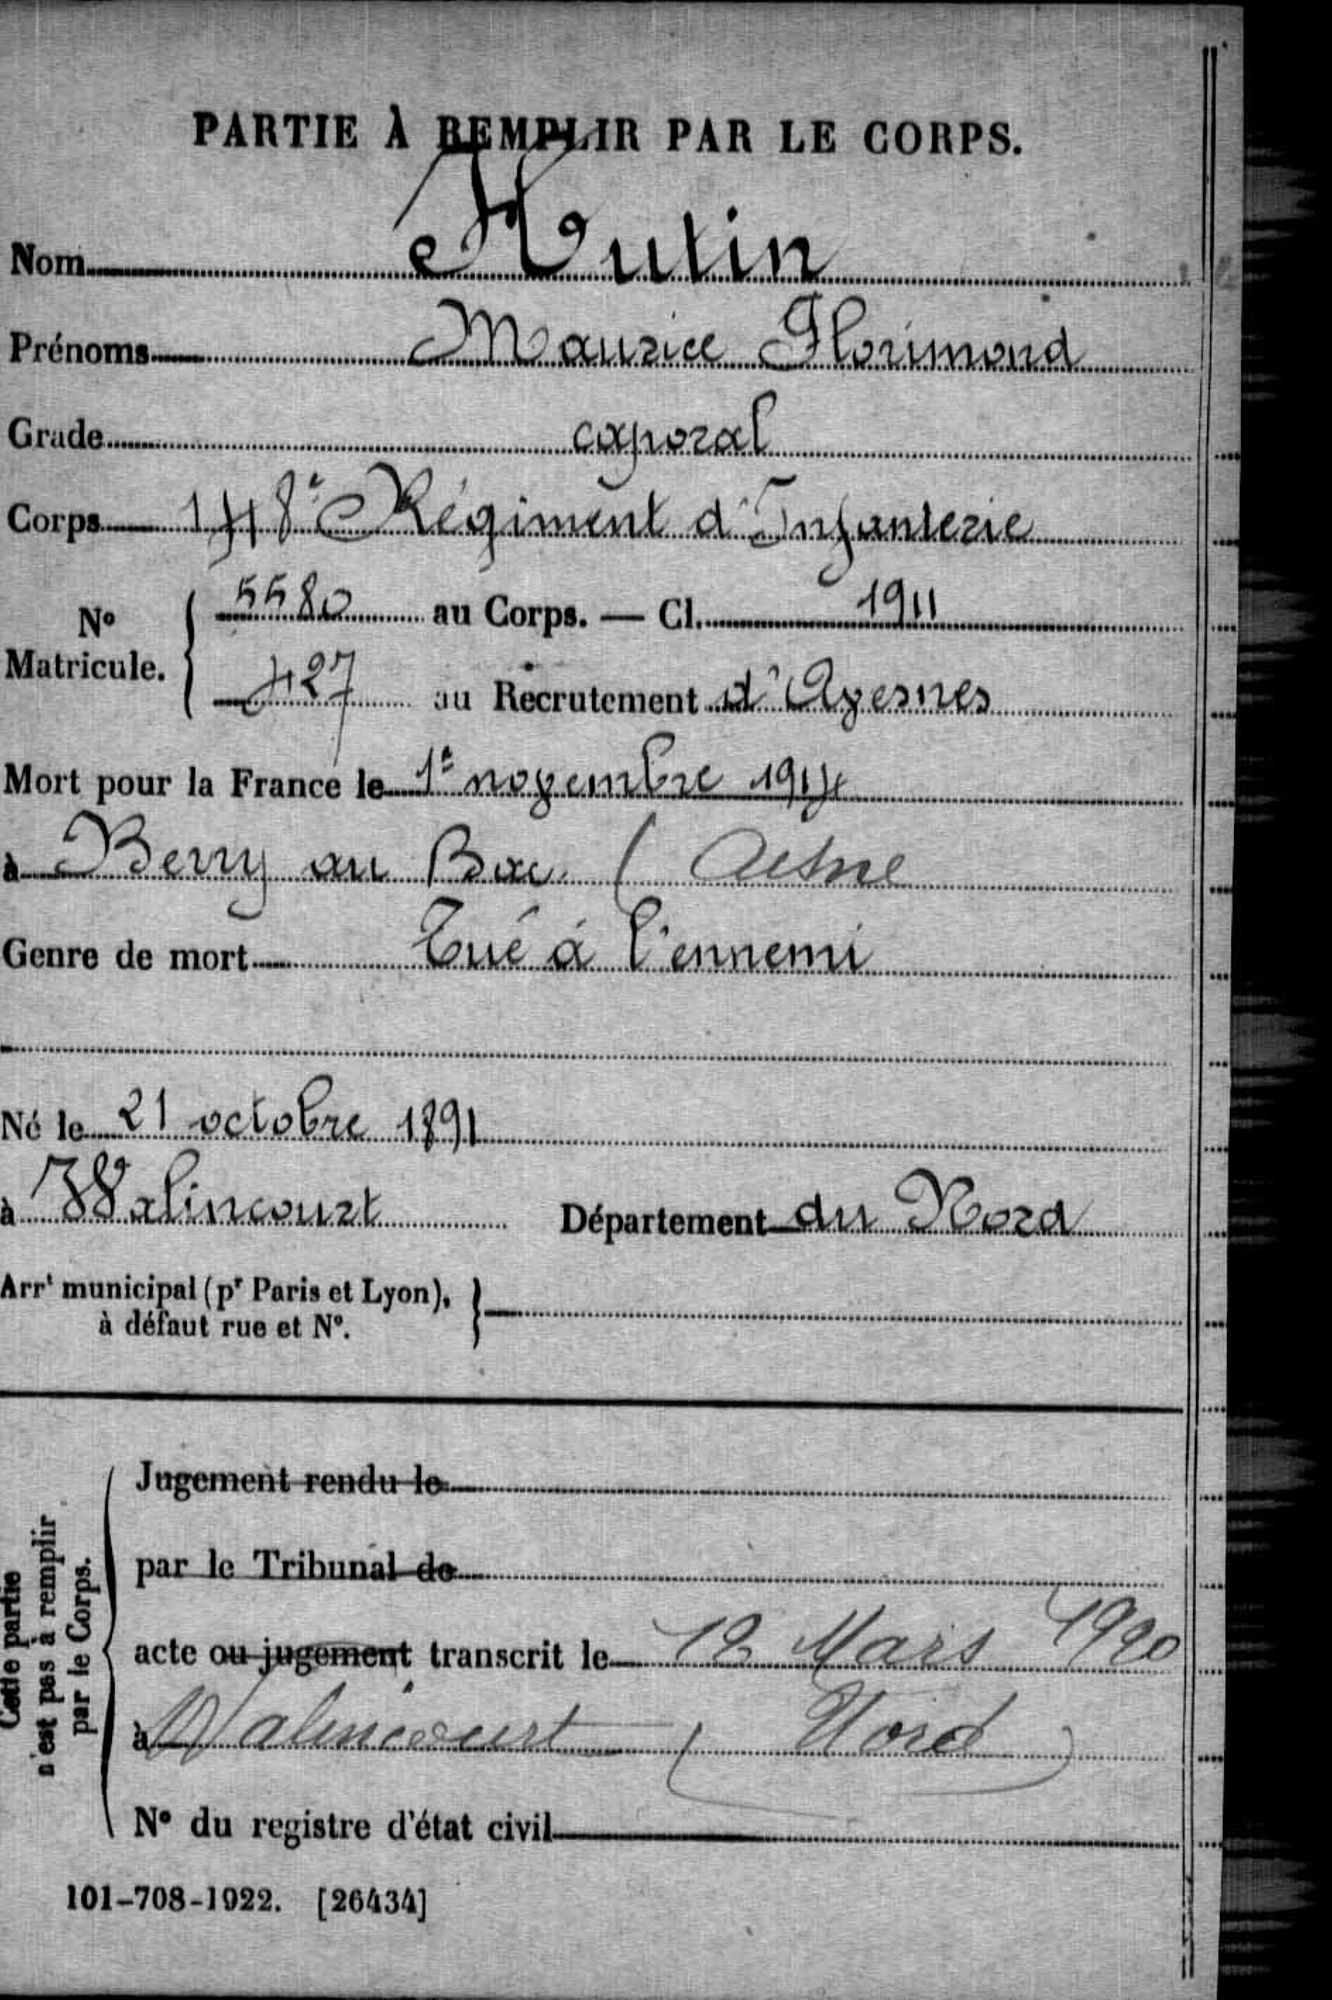 PARTIE À REMPLIR PAR LE CORPS.
Nom Hutin
Prénoms Maurice Florimond
Grade caporal
Corps 148e Régiment d'Infanterie
No Matricule. { 5580 au Corps. — Cl. 1911
427 au Recrutement d'Avesnes
Mort pour la France le 1er novembre 1914
à Berry au Bac ( Aisne
Genre de mort Tué à l'ennemi
Né le 21 octobre 1891
à Walincourt Département du Nord
Arrt municipal (pr Paris et Lyon), }
à défaut rue et No.
Cette partie
n'est pas à remplir
par le Corps.
Jugement rendu le
par le Tribunal de
acte ou jugement transcrit le 12 Mars 1920
à Walincourt ( Nord )
No du registre d'état civil
101-708-1922. [26434]